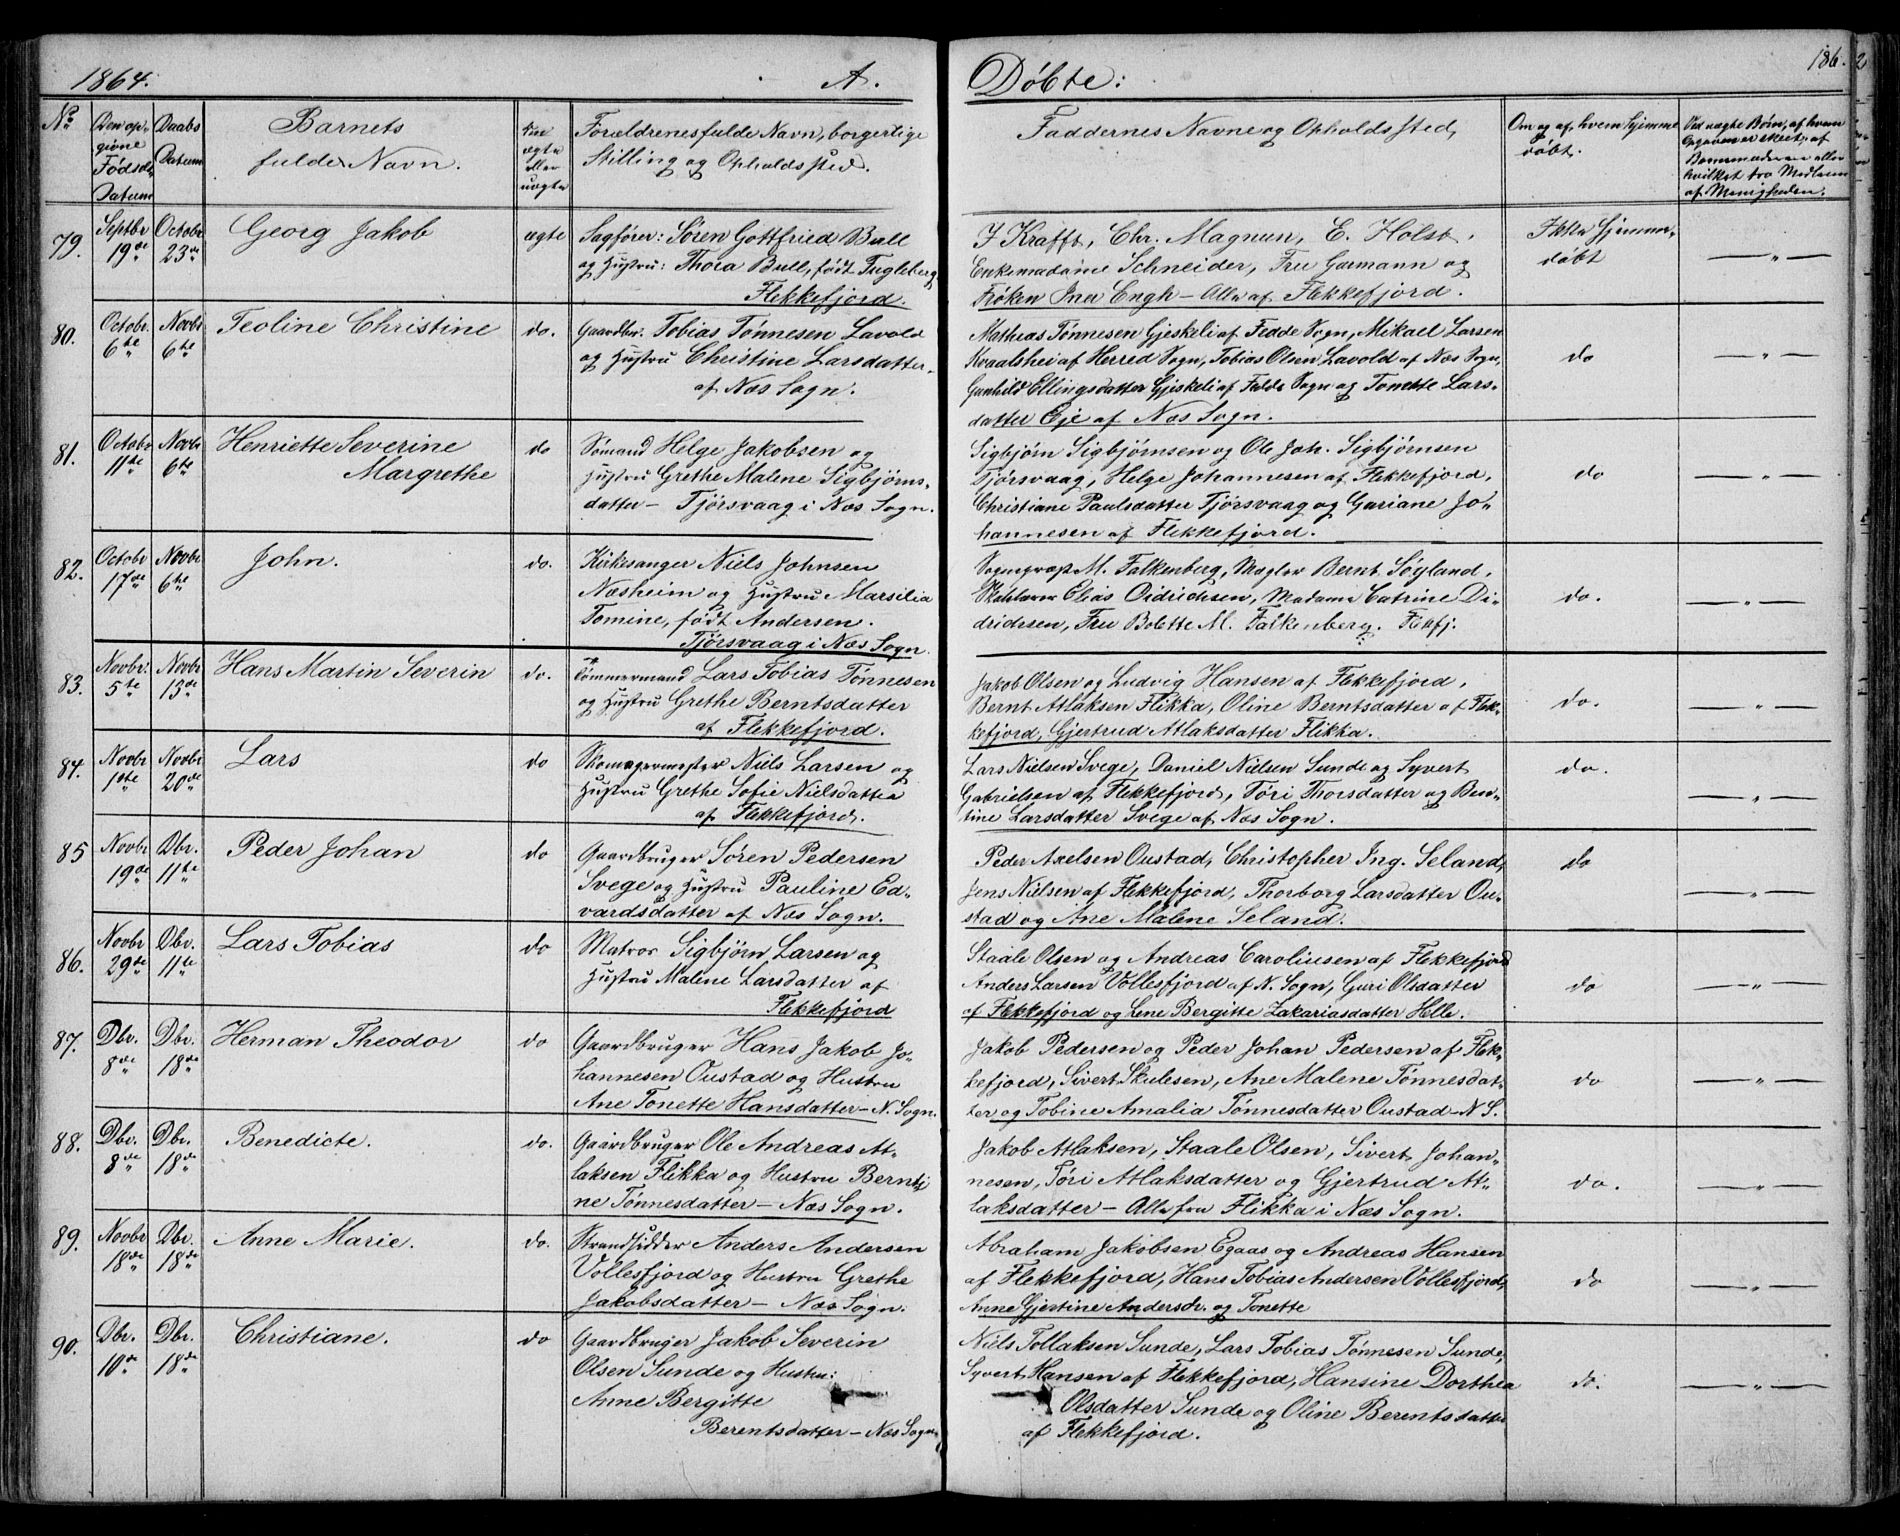 1864.
A.
Døbte:
186.
2
No
Den op-
givne
Fødsels
Datum
Daabs
Datum
Barnets
fulde Navn.
Om
ægte
eller
uægte
Forældrenes fulde Navn, borgerlige
Stilling og Opholdssted.
Faddernes Navne og Opholdssted,
Om og af hvem hjemme
døbt.
Ved uægte Børn, af hvem
Opgaven er skeet, af
Barnemoderen eller
hvilket fra Medlem
af Menigheden.
79.
Septbr
19de
Octobr
23de
Georg Jakob
ægte
Sagfører: Søren Gottfried Bull
og Hustru: Thora Bull, født Fugleberg
Flekkefjord.
J Krafft, Chr. Magnun, E. Holst,
Enkemadame Schneider, Fru Garmann og
Frøken Ina Engh – Alle af Flekkefjord.
Ikke hjemme-
døbt
— " —
80.
Octobr.
6te
Novbr
6te
Teoline Christine
do.
Gaardbr. Tobias Tønnesen Lavold
og Hustru Christine Larsdatter
af Næs Sogn.
Mathias Tønnesen Gjeskeli af Fedde Sogn, Mikael Larsen
Kvaalshei af Herred Sogn, Tobias Olsen Lavold af Næs Sogn,
Gunhild Ellingsdatter Gjeskeli af Fedde Sogn og Tonette Lars-
datter Eje af Næs Sogn.
do
— " —
81.
Octobr
11te
Novbr
6te
Henriette Severine
Margrethe
do
Sømand Helge Jakobsen og
Hustru Grethe Malene Sigbjørns-
datter – Tjørsvaag i Næs Sogn.
Sigbjørn Sigbjørnsen og Ole Joh. Sigbjørnsen
Tjørsvaag, Helge Johannesen af Flekkefjord,
Christiane Paulsdatter Tjørsvaag og Gariane Jo-
hannesen af Flekkefjord.
do
— " —
82.
Octobr
17de
Novbr
6te
John.
do.
Kirkesanger Niels Johnsen
Næsheim og Hustru Marsilia
Tomine, født Andersen.
Tjørsvaag i Næs Sogn.
Sogneprest M. Falkenberg, Mægler Bernt Søyland,
Skolelærer Elias Didrichsen, Madame Catrine Di-
dricksen, Fru Bolette M. Falkenberg. Flekfj.
do.
— " —
83.
Novbr.
5te
Novbr
13de
Hans Martin Severin
do.
Tømmermand Lars Tobias Tønnesen
og Hustru Grethe Berntsdatter
af Flekkefjord.
Jakob Olsen og Ludvig Hansen af Flekkefjord,
Bernt Atlaksen Flikka, Oline Berntsdatter af Flek-
kefjord, Gjertrud Atlaksdatter Flikka.
do.
— " —
84.
Novbr
1ste
Novbr
20de
Lars
do
Skomagermester Niels Larsen og
Hustru Grethe Sofie Nielsdatter
af Flekkefjord.
Lars Nielsen Svege, Daniel Nielsen Sunde og Syvert
Gabrielsen af Flekkefjord, Tøri Thorsdatter og Ben-
tine Larsdatter Svege af Næs Sogn.
do.
— " —
85
Novbr
19de
Dbr.
11te
Peder Johan
do
Gaardbruger Søren Pedersen
Svege og Hustru Pauline Ed-
vardsdatter af Næs Sogn.
Peder Axelsen Oustad, Christopher Ing. Seland,
Jens Nielsen af Flekkefjord, Thorborg Larsdatter Ou-
stad og Ane Malene Seland.
do
— " —
86.
Novbr
29de
Dbr.
11te
Lars Tobias
do
Matros Sigbjørn Larsen og
Hustru Malene Larsdatter af
Flekkefjord
Staale Olsen og Andreas Caroliusen af Flekkefjord
Anders Larsen Vollesfjord af N. Sogn, Guri Olsdatter
af Flekkefjord og Lene Bergitte Zakariasdatter Helle.
do
— " —
87.
Dbr.
8de
Dbr.
18de
Herman Theodor
do
Gaardbruger Hans Jakob Jo-
hannesen Oustad og Hustru
Ane Tonette Hansdatter – N. Sogn.
Jakob Pedersen og Peder Johan Pedersen af Flek-
kefjord, Sivert Skulesen, Ane Malene Tønnesdat-
ter og Tobine Amalia Tønnesdatter Oustad – N S.
do
— " —
88.
Dbr.
8de
Dbr.
18de
Benedicte.
do.
Gaardbruger Ole Andreas At-
laksen Flikka og Hustru Bernti-
ne Tønnesdatter – Næs Sogn.
Jakob Atlaksen, Staale Olsen, Sivert Johan-
nesen, Tøri Atlaksdatter og Gjertrud At-
laksdatter – Alle fra Flikka i Næs Sogn.
do.
— " —
89.
Novbr
18de
Dbr.
18de
Anne Marie.
do.
Strandsidder Anders Andersen
Vollesfjord og Hustru Grethe
Jakobsdatter – Næs Sogn.
Abraham Jakobsen Egaas og Andreas Hansen
af Flekkefjord, Hans Tobias Andersen Vollesfjord,
Anne Gjertine Andersdr. og Tonette
do
— " —
90.
Dbr.
10de
Dbr.
18de
Christiane.
do
Gaardbruger Jakob Severin
Olsen Sunde og Hustru:
Anne Bergitte
Berentsdatter – Næs Sogn.
Niels Tollaksen Sunde, Lars Tobias Tønnesen Sunde,
Syvert Hansen af Flekkefjord, Hansine Dorthea
Olsdatter Sunde og Oline Berentsdatter
af Flekkefjord.
do.
— " —